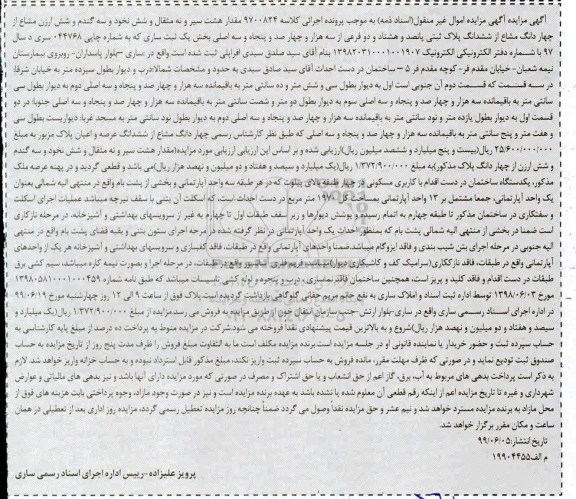 آگهی مزایده آگهی مزایده اموال غیر منقول(اسناد ذمه) به موجب پرونده اجرائی کلاسه ۹۷۰۰۸۲۴ مقدار هشت سیر و نه مثقال و شش نخود و سه گندم و شش ارزن مشاع از
چهار دانگ مشاع از ششدانگ پلاک ثبتی پانصد و هشتاد و دو فرعی از سه هزار و چهار صد و پنجاه و سه اصلی بخش یک ثبت ساری که به شماره چاپی ۰۴۴۷۶۸ سری د سال
۹۷ با شماره دفتر الکترونیکی الکترونیک ۱۳۹۸۲۰۳۱۰۰۰۱۰۰۱۹۰۷ بنام آقای سید صادق سیدی افراپلی ثبت شده است واقع در ساری –بلوار پاسداران- روبروی بیمارستان
نیمه شعبان- خیابان مقدم فر- کوچه مقدم فر ۵ – ساختمان در دست احداث آقای سید صادق سیدی به حدود و مشخصات شمالا:درب و دیوار بطول سیزده متر به خیابان شرقا:
در سه قسمت که قسمت دوم آن جنوبی است اول به دیوار بطول سی و شش متر و ده سانتی متر به باقیمانده سه هزار و چهار صد و پنجاه و سه اصلی دوم به دیوار بطول سی
سانتی متر به باقیمانده سه هزار و چهار صد و پنجاه و سه اصلی سوم به دیوار بطول دو متر و شصت سانتی متر به باقیمانده سه هزار و چهار صد و پنجاه و سه اصلی جنوبا: در دو
قسمت اول به دیوار بطول یازده متر و نود سانتی متر به باقیمانده سه هزار و چهار صد و پنجاه و سه اصلی دوم به دیوار بطول نود سانتی متر به مسجد غربا: دیواریست بطول سی
و هفت متر و پنج سانتی متر به باقیمانده سه هزار و چهار صد و پنجاه و سه اصلی که طبق نظر کارشناس رسمی چهار دانگ مشاع از ششدانگ عرصه و اعیان پلاک مزبور به مبلغ
۲۵/۶۰۰/۰۰۰/۰۰۰ ریال(بیست و پنج میلیارد و ششصد میلیون ریال)ارزیابی شده و بر اساس این ارزیابی ارزیابی مورد مزایده(مقدار هشت سیر و نه مثقال و شش نخود و سه گندم
و شش ارزن از چهار دانگ پلاک مذکور)به مبلغ ۱/۳۷۲/۹۰۰/۰۰۰ ریال(یک میلیارد و سیصد و هفتاد و دو میلیون و نهصد هزار ریال)می باشد و قطعی گردید و در پهنه عرصه ملک
مذکور، یکدستگاه ساختمان در دست اقدام با کاربری مسکونی در چهار طبقه بالای پیلوت که در هر طبقه سه واحد آپارتمانی و بخشی از پشت بام واقع در منتهی الیه شمالی بعنوان
یک واحد آپارتمانی، جمعا مشتمل بر ۱۳ واحد آپارتمانی بمساحت کل ۱۹۷۰ متر مربع در دست احداث است، که اسکلت آن بتنی با سقف تیرچه میباشد عملیات اجرای اسکلت
و سفتکاری در ساختمان مذکور تا طبقه چهارم به اتمام رسیده و پوشش دیوارها و زیر سقف طبقات اول تا چهارم به غیر از سرویسهای بهداشتی و آشپزخانه، در مرحله نازکاری
است ضمنا در بخشی از منتهی الیه شمالی پشت بام که بمنظور احداث یک واحد آپارتمانی در نظر گرفته شده در مرحله اجرای ستون بتنی و بقیه فضای پشت بام واقع در منتهی
الیه جنوبی در مرحله اجرای بتن شیب بندی و فاقد ایزوگام میباشد.ضمنا واحدهای آپارتمانی واقع در طبقات، فاقد کفسازی و سرویسهای بهداشتی و آشپزخانه هر یک از واحدهای
آپارتمانی واقع در طبقات، فاقد نازککاری(سرامیک کف و کاشیکاری دیوار)میباشد.
طبقات در دست اقدام و فاقد کلید و پریز است، همچنین ساختمان فاقد نماسازی ، درب و پنجره و لوله کشی تاسیسات میباشد که طبق نامه شماره ۱۳۹۸۰۵۸۱۰۰۰۱۰۰۰۴۵۹
مورخ ۱۳۹۸/۰۶/۰۳ توسط اداره ثبت اسناد و املاک ساری به نفع خانم مریم حقانی گلوگاهی بازداشت گردیده است پلاک فوق از ساعت ۹ الی ۱۲ روز چهارشنبه مورخ ۹۹/۰۶/۱۹
در اداره اجرای اسناد رسمی ساری واقع در ساری-بلوار ارتش -جنب سازمان انتقال خون از طریق مزایده به فروش می رسد.مزایده از مبلغ ۱/۳۷۲/۹۰۰/۰۰۰ ریال(یک میلیارد و
سیصد و هفتاد و دو میلیون و نهصد هزار ریال)شروع و به بالاترین قیمت پیشنهادی نقدا فروخته می شود.شرکت در مزایده منوط به پرداخت ده درصد از مبلغ پایه کارشناسی به
حساب سپرده ثبت و حضور خریدار یا نماینده قانونی او در جلسه مزایده است.برنده مزایده مکلف است ما به التفاوت مبلغ فروش را ظرف مدت پنج روز از تاریخ مزایده به حساب
صندوق ثبت تودیع نماید و در صورتی که ظرف مهلت مقرر، مانده فروش به حساب سپرده ثبت واریز نکند، مبلغ مذکور قابل استرداد نبوده و به حساب خزانه واریز خواهد شد. لازم
به ذکر است پرداخت بدهی های مربوط به آب، برق، گاز اعم از حق انشعاب و یا حق اشتراک و مصرف در صورتی که مورد مزایده دارای آنها باشد و نیز بدهی های مالیاتی و عوارض
شهرداری و غیره تا تاریخ مزایده اعم از اینکه رقم قطعی آن معلوم شده یا نشده باشد به عهده برنده مزایده است و نیز در صورت وجود مازاد، وجوه پرداختی بابت هزینه های فوق از
محل مازاد به برنده مزایده مسترد خواهد شد و نیم عشر و حق مزایده نقدا وصول می گردد ضمنا چنانچه روز مزایده تعطیل رسمی گردد، مزایده روز اداری بعد از تعطیلی در همان
ساعت و مکان مقرر برگزار خواهد شد.
تاریخ انتشار:۹۹/۰۶/۰۵
م الف۱۹۹۰۴۴۵۵
پرویز علیزاده –رییس اداره اجرای اسناد رسمی ساری